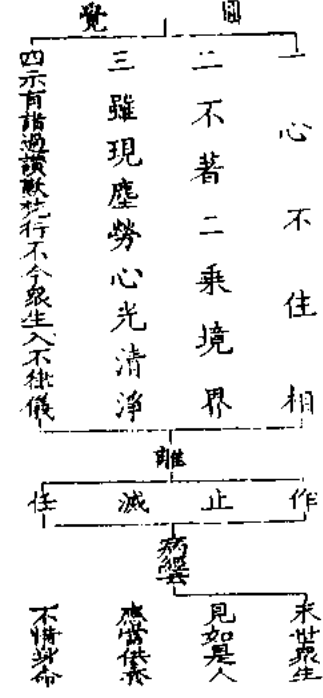 圓覺
一心不住相
二不著二乘境界
三雖現塵勞心光清淨
四示有諸過讚歎梵行不令眾生入不律儀
離
作
止
滅
任
病經
末世眾生
見如是人
應當供養
不惜身命